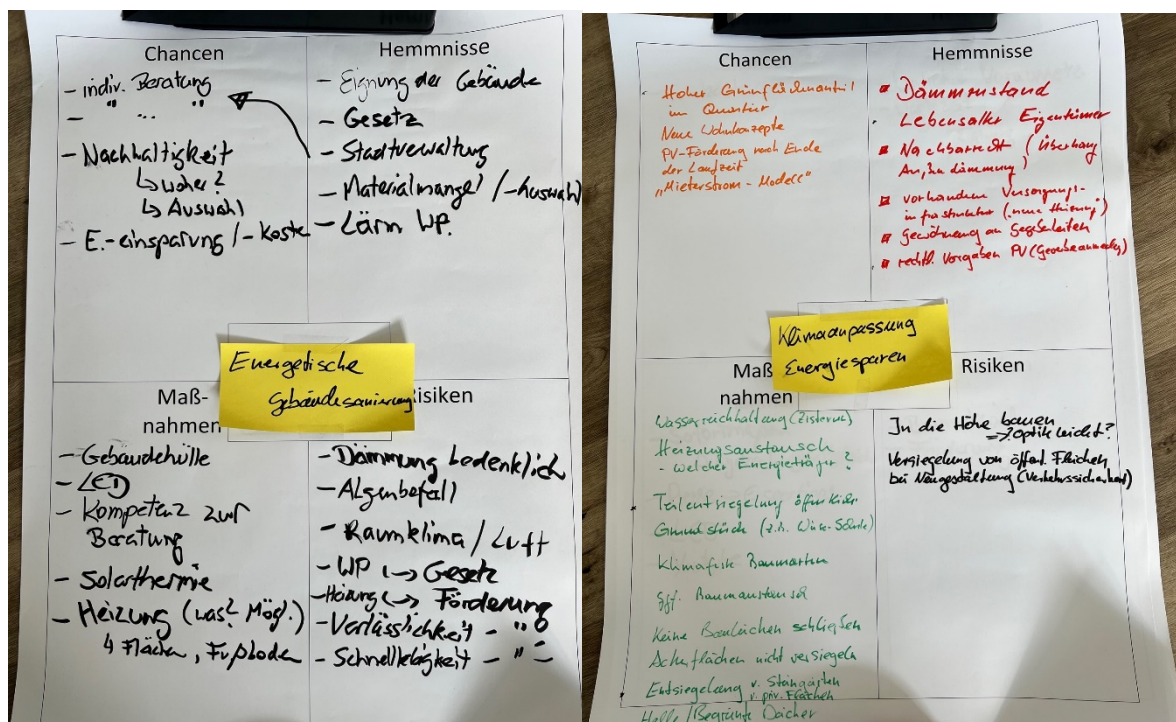 Chancen
- indiv. Beratung
" "
- " ..
- Nachhaltigkeit
↳ woher?
↳ Auswahl
- E.-einsparung/-koste
Hemmnisse
- Eignung der Gebäude
- Gesetz
- Stadtverwaltung
- Materialmangel/-Auswahl
- Lärm WP.
Energetische
Gebäudesanierung
Maß-
nahmen
- Gebäudehülle
- LED
- Kompetenz zur
Beratung
- Solarthermie
- Heizung (was? Mögl.)
↳ Flächen, Fußboden
isiken
- Dämmung bedenklich
- Algenbefall
- Raumklima / Luft
- WP ↔ Gesetz
- Heizung ↔ Förderung
- Verlässlichkeit - "
- Schnelllebigkeit - "
Chancen
Hoher Grünflächenanteil
im Quartier
Neue Wohnkonzepte
PV-Förderung nach Ende
der Laufzeit
„Mieterstrom-Modell"
Hemmnisse
Dämmenstand
Lebensalter Eigentümer
Nachbarrecht (Überhang
dämmung)
vorhandene Versorgungs-
infrastruktur (neue Heizung)
Gewöhnung an Gegebenheiten
rechtl. Vorgaben PV (Gewerbeanmeldg)
Klimaanpassung
Energiesparen
Maß
nahmen
Wasserreichhaltung (Zisterne)
Heizungsaustausch
- welcher Energieträger?
Teilentsiegelung öffentlicher
Grundstück (z.B. Schule)
Klimafeste Baumarten
ggf. Baumaustausch
Keine Baulücken schließen
Ackerflächen nicht versiegeln
Entsiegelung v. Steingärten
v. priv. Flächen
Helle/Begrünte Dächer
Risiken
In die Höhe bauen
=> Optik leidet?
Versiegelung von öffentl. Flächen
bei Neugestaltung (Verkehrssicherheit)